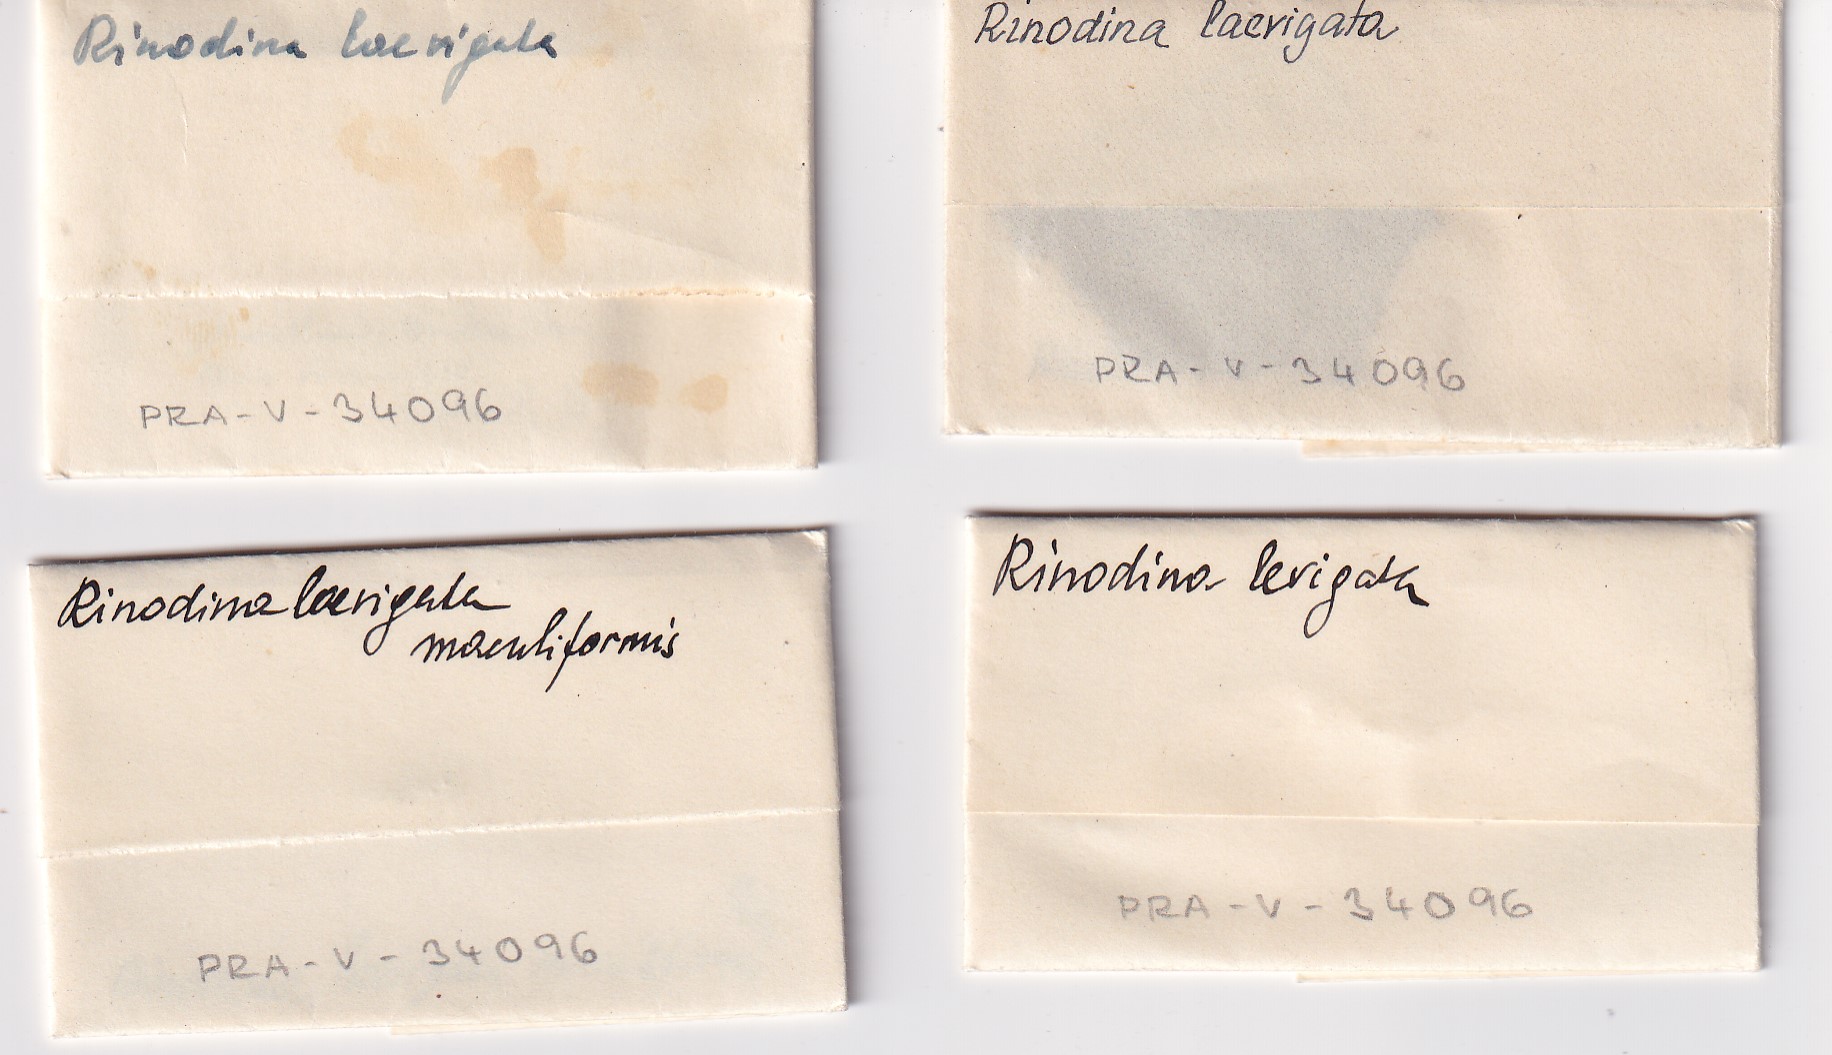 Rinodina laevigata
PRA-V-34096
Rinodina laevigata
PRA-V-34096
Rinodina laevigata
maculiformis
PRA-V-34096
Rinodina levigata
PRA-V-34096